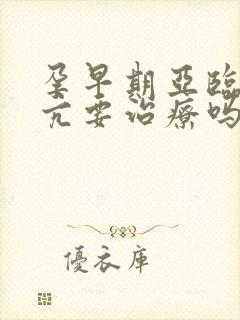 孕早期亞臨
亢要治療嗎
優衣庫